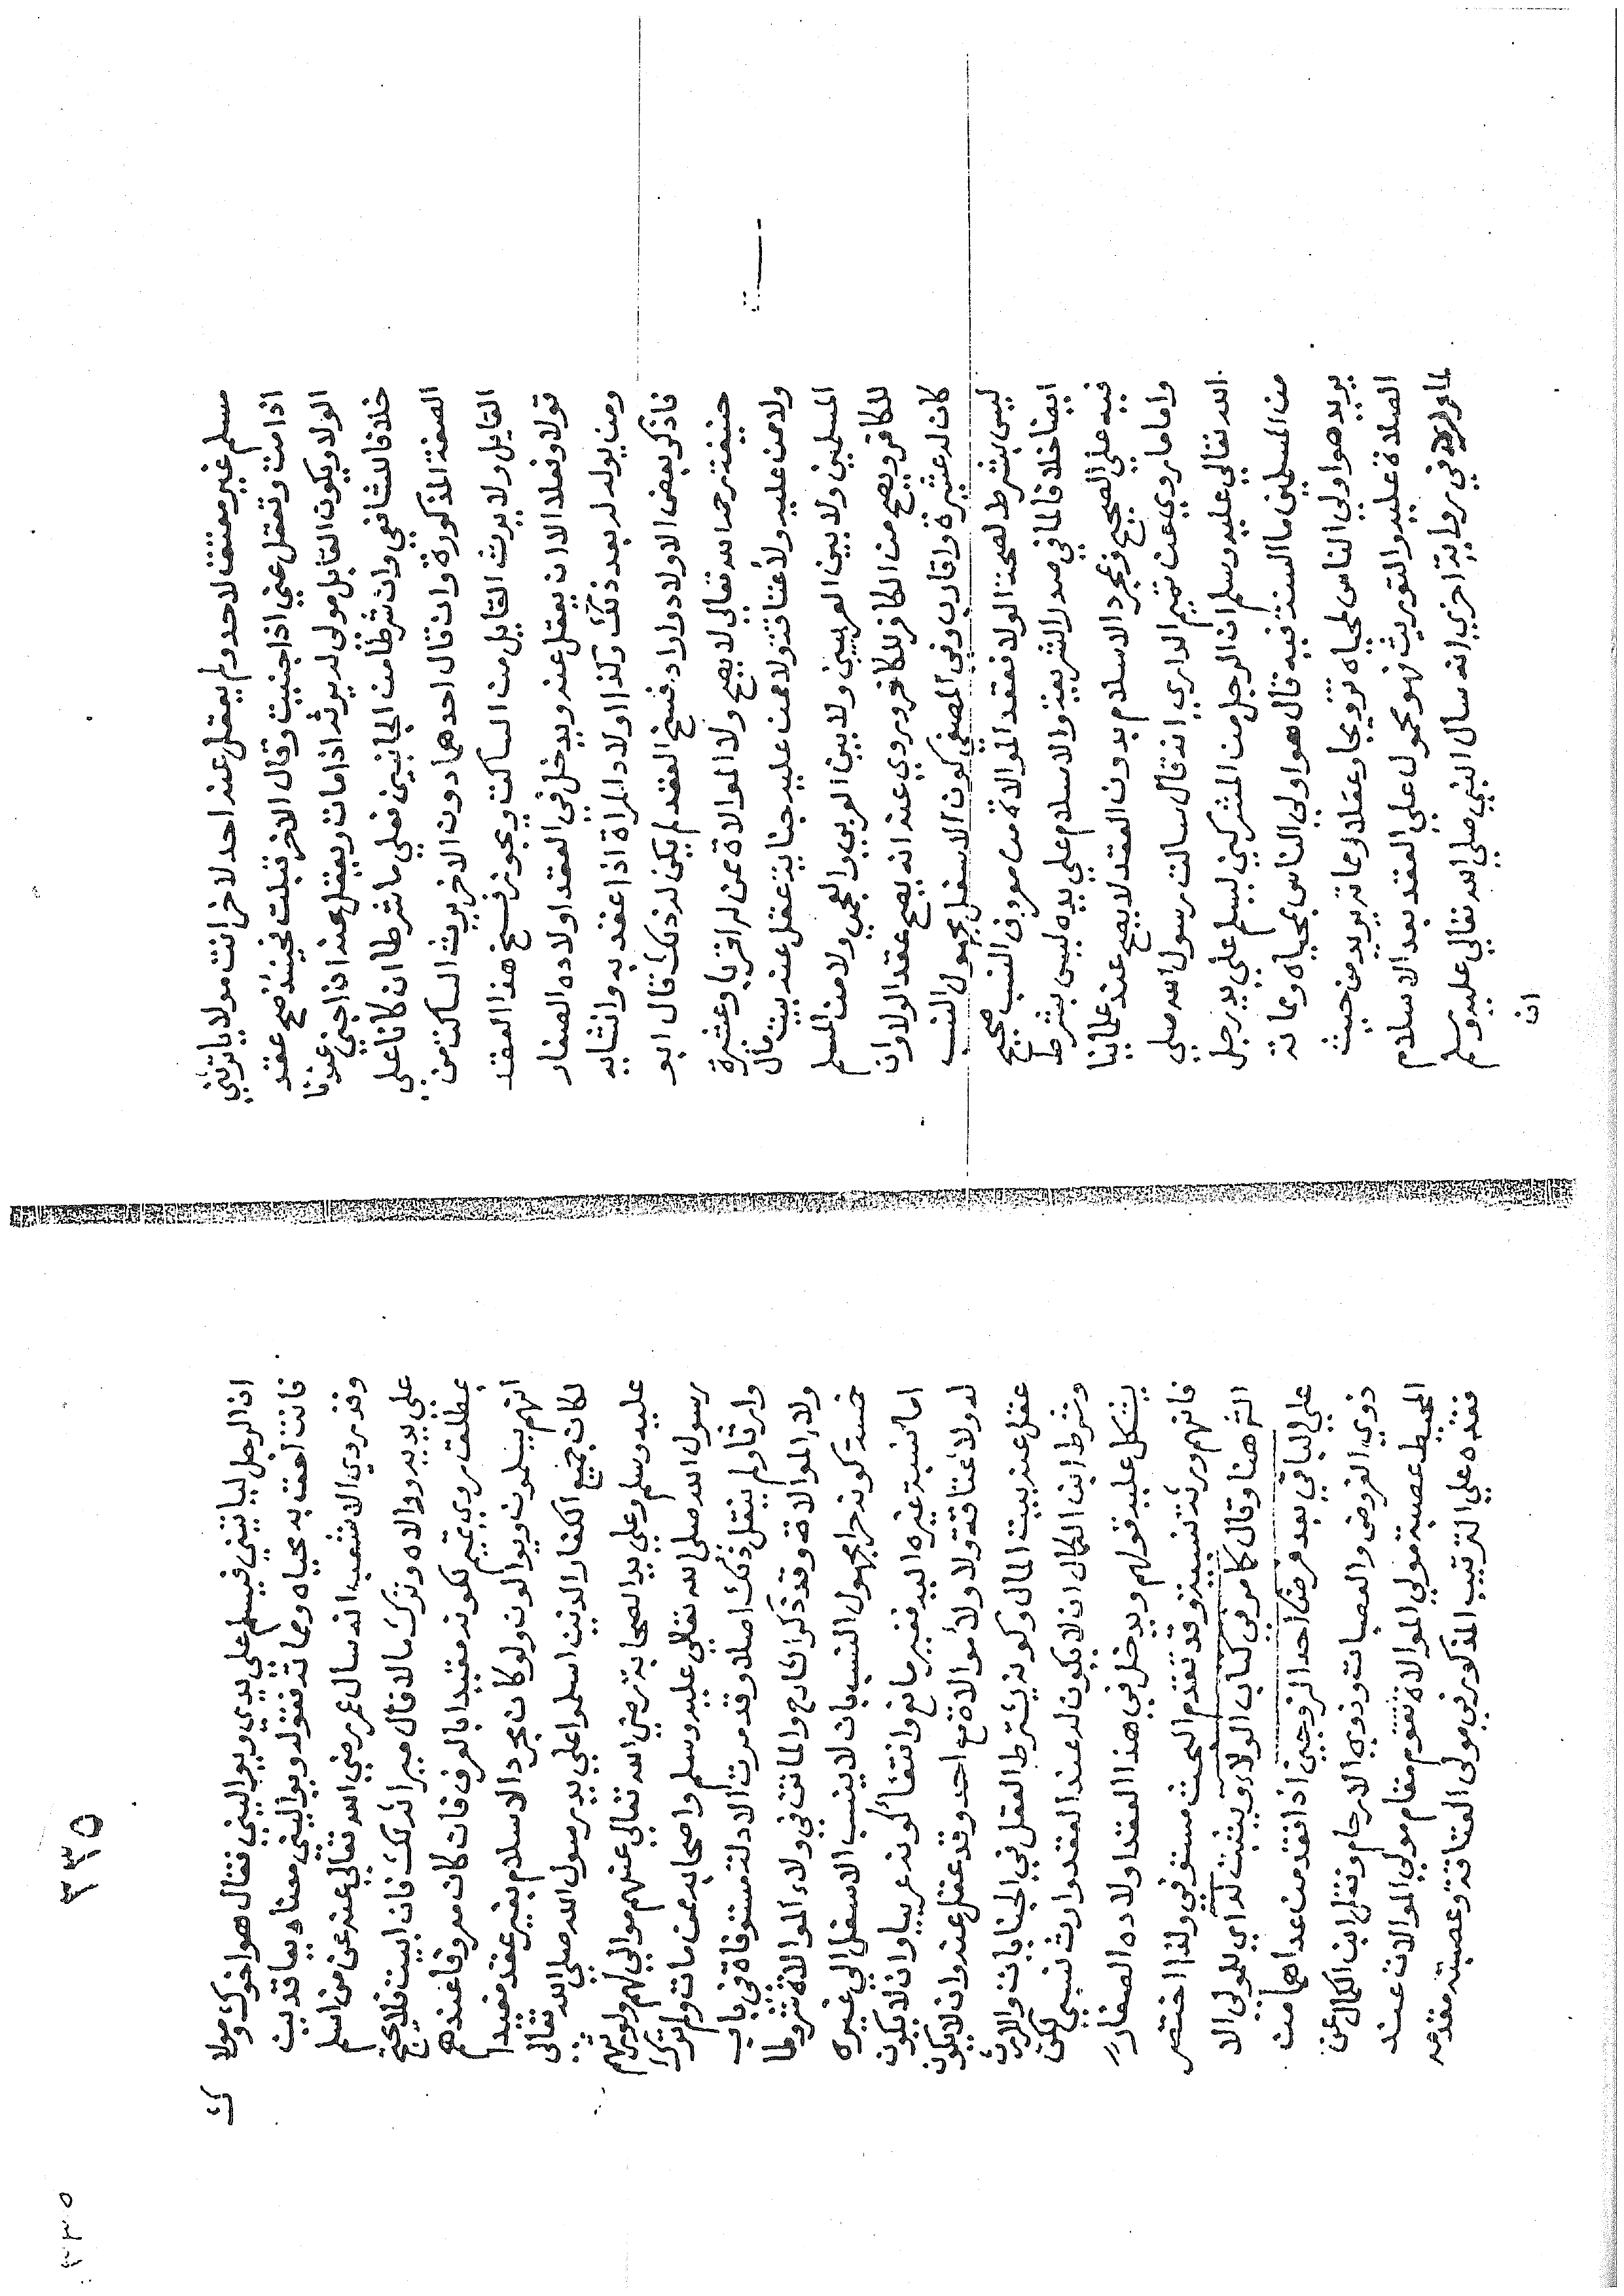 مسلم غير معتقا لاحد ولم يعقل عنه احد لاخر انت مولاي ترثني
اذا مت وتعقل عني اذا جنيت وقال الاخر قبلت فحينئذ صح عقد
الولا ويكون القابل مولى له يرثه اذا مات ويعقل عنه اذا جنى عندنا
خلافا للشافعي وان شرطا من الجانبين فعلي ما شرطا ان كانا علي
الصفة المذكورة وان قال احدهما دون الاخر يرث الساكت من
القايل ولا يرث القايل من الساكت ويجوز فسخ هذا العقد
قولا وفعلا الا ان يعقل عنه ويدخل في العقد اولاده الصغار
ومن يولد له بعد ذلك وكذا اولاد المراة اذا عقد به وانشابه
فاذكر بعض الاولاد واراد فسخ العقد لم يكن له ذلك قال ابو
حنيفة رحمه الله تعالى لا يصح ولا الموالاة ممن له اقربا وعشيرة
ولا من عليه ولا عتاقة ولا ممن عليه جناية عقل عنه بيت مال
المسلمين ولا بين العربيين ولا بين العربي والعجمي ولا من المسلم
للكافر ويصح من الكافر للكافر وروي عنه انه يصح عقد الولا وان
كان له عشيرة واقارب وفي المصفى كون الاسفل مجهول النسب
ليس بشرط لصحة الولا فعقد الموالاة من معروف النسب صحيح
ايضا خلافا لما في صدر الشريعة والاسلام علي يده ليس بشرط
فيه علي الصحيح ومجرد الاسلام بدون العقد لا يصح عند علماينا
واما ما روي عن تميم الداري انه قال سالت رسول الله صلي
الله تعالي عليه وسلم ان الرجل من المشركين ليسلم علي يد رجل
من المسلمين ما السنة فيه قال هو اولي الناس بمحياه ومماته
يريد هو اولي الناس لمحياه تزويجا وعقلا ومماته يريد من حيث
الصلاة عليه والتوريث فهو محمول علي العقد بعد الاسلام
في رواية اخري انه سال النبي صلي الله تعالي عليه وسلم
ان
٢٣٥
ان الرجل لياتيني فيسلم علي يدي ويواليني فقال هو اخوك ومولاك
فانت احق به محياه ومماته فقوله ويواليني معناه يعاقدني
وقد روي الاشعب انه سال عمر رضي الله تعالي عنه عن من اسلم
علي يديه ووالاه وترك مالا قال ميراثه لك فان ابيت فلا يحج
بمطلق روي تميم لكونه مقيدا بالعرف فان كان معروفا عندهم
انهم يسلمون ويوالون ولو كان مجرد الاسلام بغير عقد مفيدا
لكان جميع الكفار الذين اسلموا علي يد رسول الله صلي الله تعالي
عليه وسلم وعلي يد الصحابة رضي الله تعالي عنهم موالي لهم ولورثهم
رسول الله صلي الله تعالي عليه وسلم واصحابه ممن مات ولم يترك
وارثا ولم ينقل ذلك اصلا وقد مرت الادلة مستوفاة في باب
ولاء الموالاة وقد ذكر الشارح والماتن في ولاء الموالاة شروطا
خمسة كونه حرا مجهول النسب بان لا ينسب الاسفل الي غيره
اما نسبة غيره اليه فغير مانع وانتفا كونه عربيا وان لا يكون
له ولا عتاقه ولا ولا موالاة مع احد وقد عقل عنه وان لا يكون
عقل عنه بيت المال وكونه يشترط العقل في الجنايات والارث
وشرط ابن الكمال ان لا يكون له عند العقد وارث نسبي لكن
يشكل عليه قولهم ويدخل في هذا العقد اولاده الصغار
فانهم ورثته نسبية وقد تقدم البحث مستوفي ولذا اختصر
الثر هنا وقال كما مر في كتاب الولاء ويثبت له اي للمولي الا
علي الباقي بعد فرض احد الزوجين اذا فقد من عداهما من
ذوي الفروض والعصبات وذوي الارحام ونقل ابن الكمال عن
المحيط عصبة مولي الموالاة تقوم مقام مولي الموالات عند
فقده علي الترتيب المذكور في مولى العتاقة وعصبته مقدمه
٢٣٥